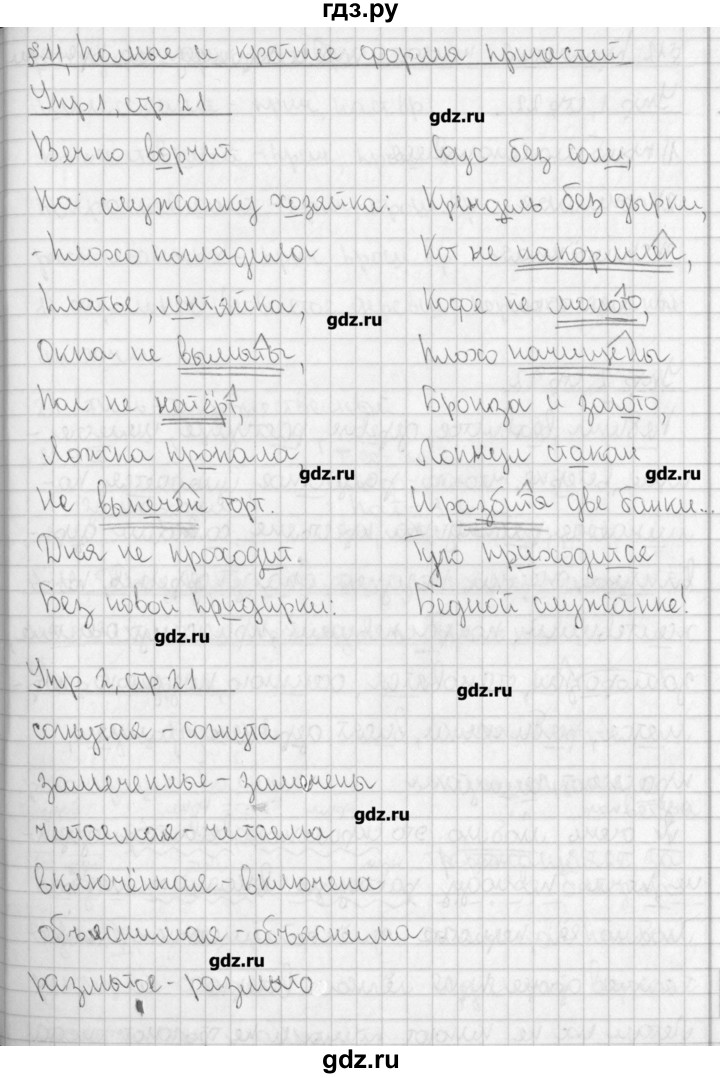 гдз.ру
§11, Полные и краткие формы причастий
Упр 1, стр. 21
gdz.ru
Вечно ворчит
На служанку хозяйка:
- Плохо погладила
Платье, лентяйка,
gdz.ru
Окна не вымыты,
Пол не натёрт,
Ложка пропала,
gdz.ru
Не выпечен торт.
Дня не проходит.
Без новой придирки:
gdz.ru
Соус без соли,
Крендель без дырки,
Кот не накормлен,
Кофе не молото,
Плохо начищены
Бронза и золото,
Лопнул стакан
gdz.ru
И разбиты две банки...
Туго приходится
Бедной служанке!
Упр. 2, стр. 21
gdz.ru
согнутая - согнута
замеченные - замечены
gdz.ru
читаемая - читаема
включённая - включена
объяснимая - объяснима
gdz.ru
размытое - размыто
gdz.ru